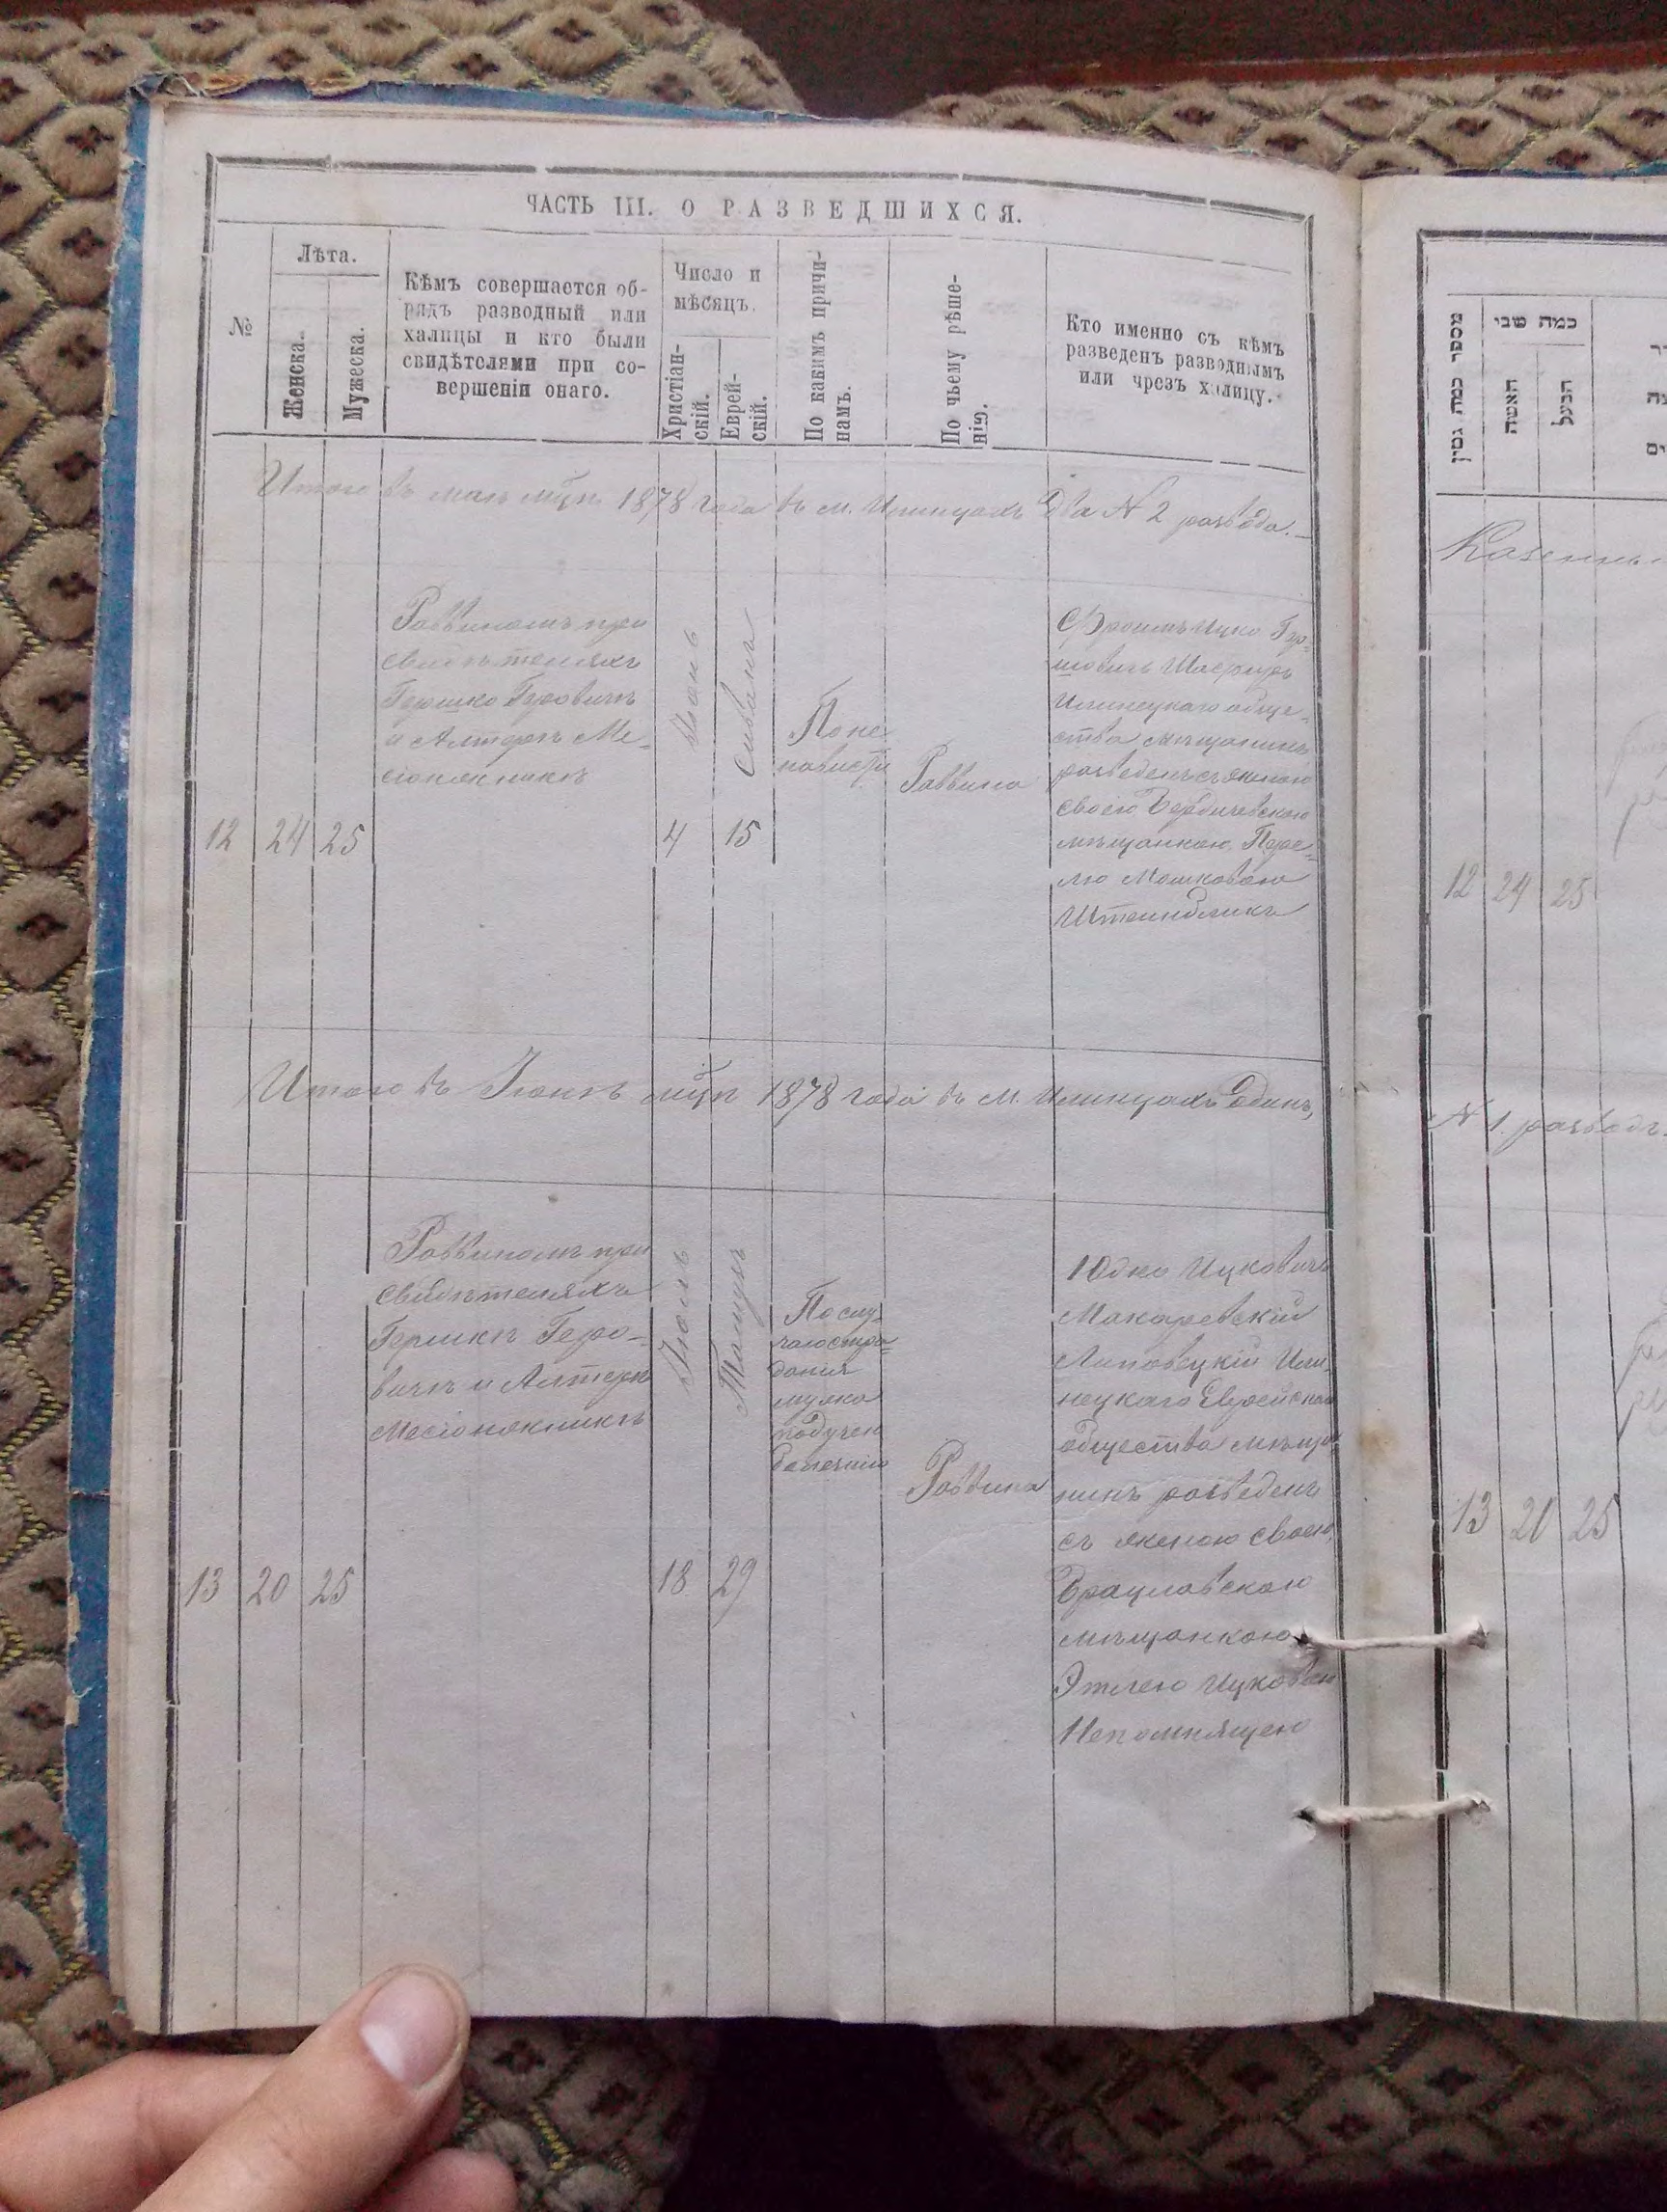 ЧАСТЬ III. О РАЗВЕДШИХСЯ.
№
Лѣта.
Женска.
Мужеска.
Кѣмъ совершается об-
рядъ разводный или
халицы и кто были
свидѣтелями при со-
вершеніи онаго.
Число и
мѣсяцъ.
Христіан-
скій.
Еврей-
скій.
По какимъ причи-
намъ.
По чьему рѣше-
нію.
Кто именно съ кѣмъ
разведенъ разводнымъ
или чрезъ халицу.
Итого въ маѣ 1878 года въ м. Илинцахъ два № 2 развода.
12
24
25
Раввиномъ при
свидѣтеляхъ
Гершко
и Алтеръ
Іюнь
4
Сиванъ
15
По не
нависти
Раввина
Фроимъ Ицко Гер-
шовичъ
Илинецкаго обще-
ства мѣщанинъ
разведенъ съ женою
своею Бердичевскою
мѣщанкою Пере-
лю Мошковою
Итого въ Іюнѣ 1878 года въ м. Илинцахъ одинъ,
13
20
25
Раввиномъ при
свидѣтеляхъ
Гершкѣ Геро-
вичъ и Алтеръ
Іюль
18
Тамузъ
29
По слу
чаю стра-
данія
мужа
падучею
болезнію
Раввина
Юдко Ицковичъ
Макаревскій
Липовецкій Или-
нецкаго Еврейскаго
общества мѣща
нинъ разведенъ
съ женою своею
Брацлавскою
мѣщанкою
Этлею Ицковою
Непомнящею
מספר כמה גטין
כמה שני
האשה
הבעל
12
24
25
№ 1 разводъ.
13
20
25